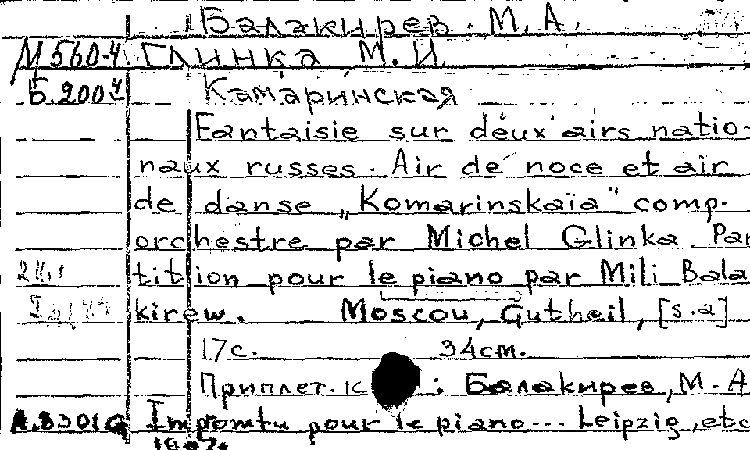 Балакирев. М. А.
М 560-4 Глинка М. И
Б. 2004 Камаринская
Fantaisie sur deux airs natio-
naux russes. Air de noce et air
de danse „Komarinskaïa" comp.
orchestre par Michel Glinka Par
tition pour le piano par Mili Bala
kirew. Moscou, Gutheil, [s.a]
17с. 34см.
Приплет. к : Балакирев, М. А
Impromtu pour le piano... Leipzig, etc